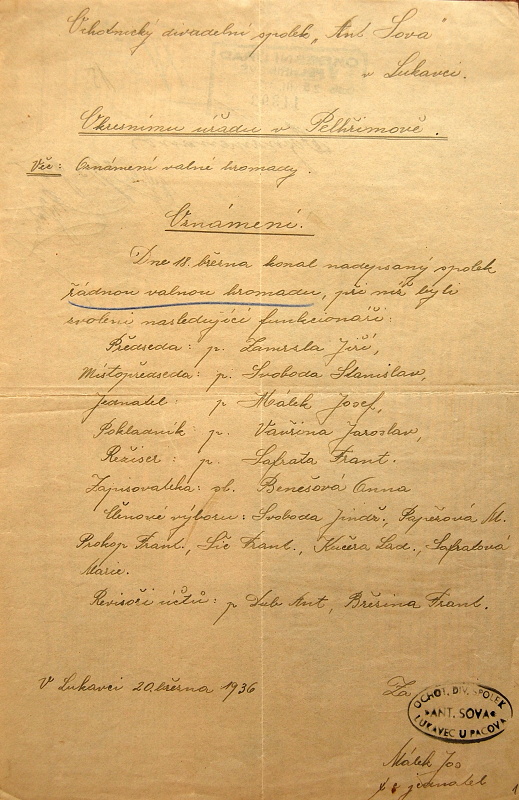 Ochotnický divadelní spolek „Ant. Sova"
v Lukavci.
Okresnímu úřadu v Pelhřimově.
Věc: Oznámení valné hromady.
Oznámení.
Dne 18. března konal nadepsaný spolek
řádnou valnou hromadu, při níž byli
zvoleni následující funkcionáři:
Předseda: p. Zamrzla Jiří,
Místopředseda: p. Svoboda Stanislav,
Jednatel: p Málek Josef,
Pokladník: p. Vavřina Jaroslav,
Režiser: p. Šafrata Frant.
Zapisovatelka: sl. Benešová Anna
Členové výboru: Svoboda Jindř., Papežová M.
Prokop Frant., Šíc Frant., Kučera Lad., Šafratová
Marie.
Revisoři účtů: p Dub Ant, Březina Frant.
V Lukavci 20. března 1936
Za
OCHOT. DIV. SPOLEK
"ANT. SOVA"
LUKAVEC U PACOVA
Málek Jos
jednatel